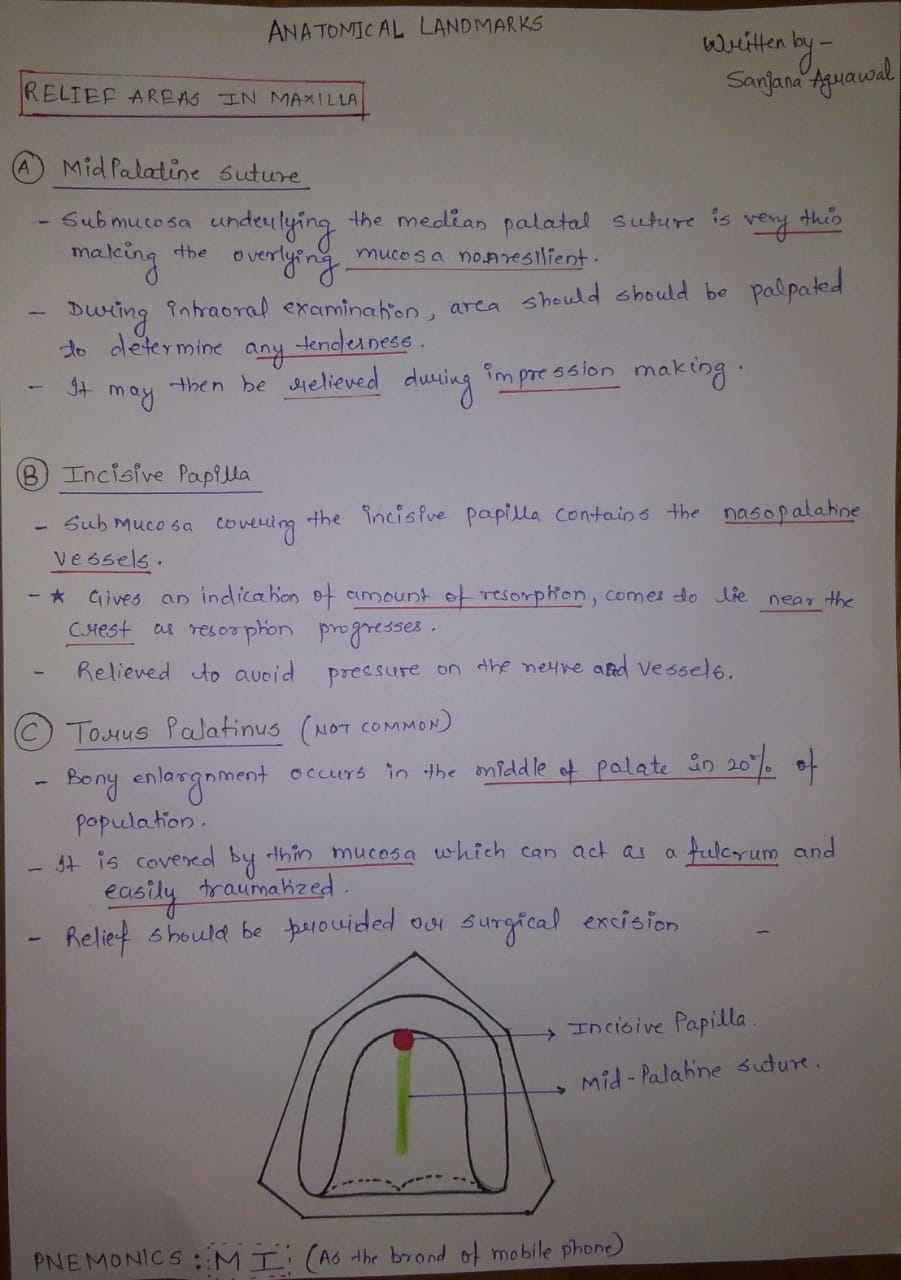 ANATOMICAL LANDMARKS
Written by -
Sanjana Agrawal
RELIEF AREAS IN MAXILLA
A MidPalatine suture
- Submucosa underlying the median palatal suture is very thin
making the overlying mucosa nonresilient.
- During intraoral examination, area should should be palpated
to determine any tenderness.
- It may then be relieved during impression making.
B Incisive Papilla
- Sub Mucosa covering the incisive papilla contains the nasopalatine
vessels.
- ★ Gives an indication of amount of resorption, comes to lie near the
crest as resorption progresses.
- Relieved to avoid pressure on the nerve and vessels.
C Torus Palatinus (NOT COMMON)
- Bony enlargnment occurs in the middle of palate in 20% of
population.
- It is covered by thin mucosa which can act as a fulcrum and
easily traumatized.
- Relief should be provided or surgical excision -
Incisive Papilla.
Mid-Palatine suture.
PNEMONICS : M I (As the brand of mobile phone)